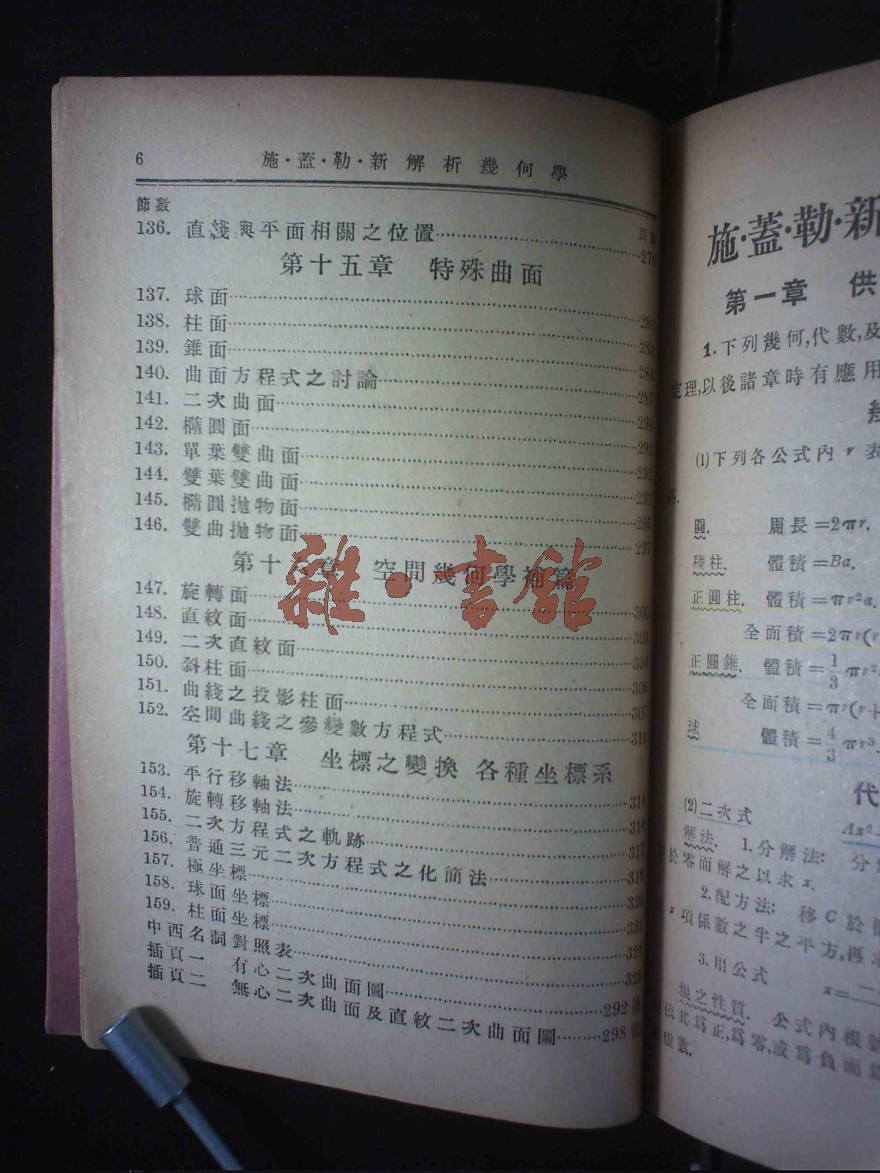 6 施·蓋·勒·新解析幾何學
節數 頁
136. 直綫與平面相關之位置
第十五章 特殊曲面
137. 球面
138. 柱面
139. 錐面
140. 曲面方程式之討論 287
141. 二次曲面 290
142. 橢圓面
143. 單葉雙曲面 292
144. 雙葉雙曲面
145. 橢圓拋物面
146. 雙曲拋物面 297
第十六章 空間幾何學補篇
147. 旋轉面
148. 直紋面 303
149. 二次直紋面 304
150. 斜柱面 306
151. 曲綫之投影柱面 307
152. 空間曲綫之參變數方程式 311
第十七章 坐標之變換 各種坐標系
153. 平行移軸法 314
154. 旋轉移軸法 314
155. 二次方程式之軌跡 317
156. 普通三元二次方程式之化簡法 318
157. 極坐標 320
158. 球面坐標 321
159. 柱面坐標
中西名詞對照表 325
插頁一 有心二次曲面圖 292後
插頁二 無心二次曲面及直紋二次曲面圖 298後
雜·書館
施·蓋·勒·新
第一章 供
1. 下列幾何,代數,及
定理,以後諸章時有應用
(1)下列各公式內 r 表
圓. 周長=2πr.
稜柱. 體積=Ba.
正圓柱. 體積=πr²a.
全面積=2πr(r
正圓錐. 體積=1/3 πr²
全面積=πr(r+
球. 體積=4/3 πr³.
代
(2)二次式
Ax²
解法. 1.分解法: 分
於零而解之以求 x.
2.配方法: 移 C 於
x 項係數之半之平方,再
3.用公式
x=
根之性質. 公式內根號
依其爲正,爲零,或爲負而
虛數.